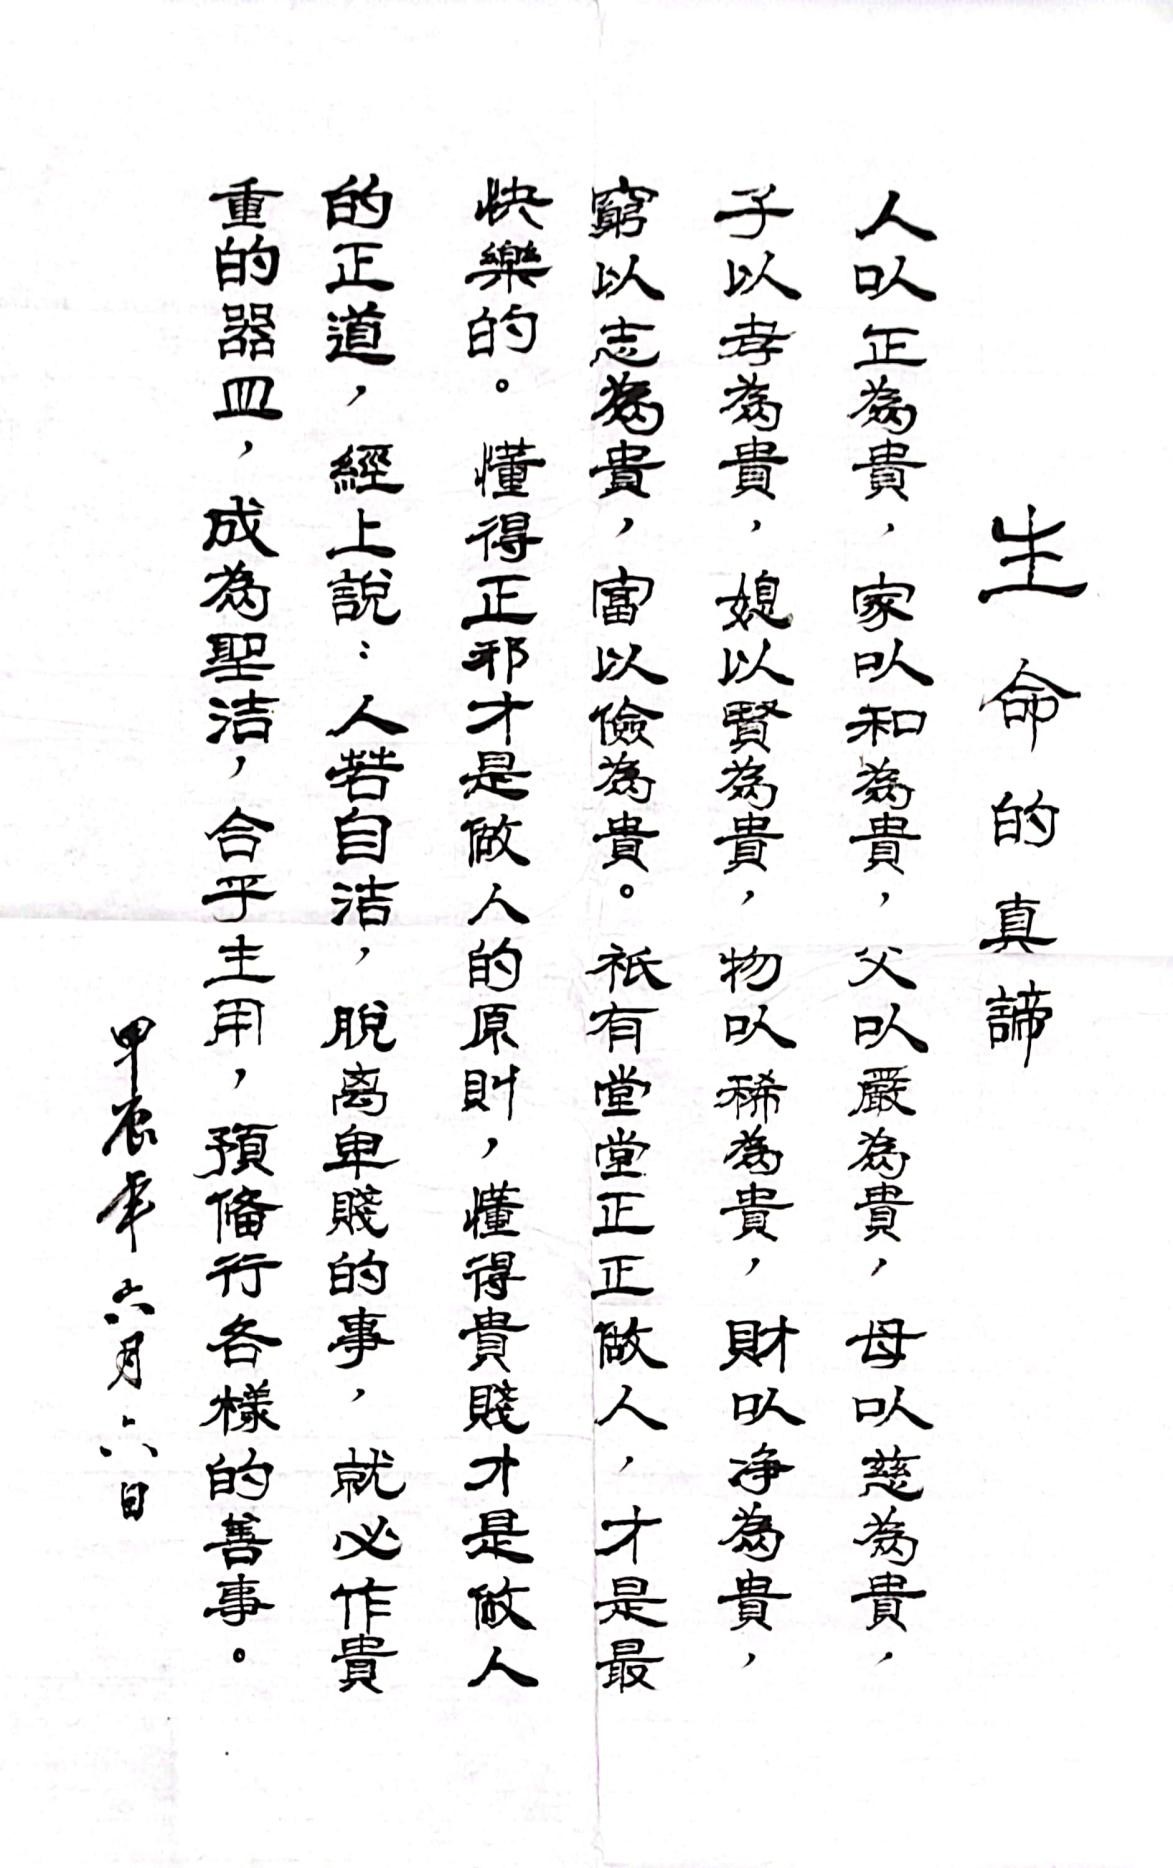 生命的真諦
人以正為貴，家以和為貴，父以嚴為貴，母以慈為貴，
子以孝為貴，媳以賢為貴，物以稀為貴，財以净為貴，
窮以志為貴，富以儉為貴。祇有堂堂正正做人，才是最
快樂的。懂得正邪才是做人的原則，懂得貴賤才是做人
的正道，經上說：人若自洁，脫离卑賤的事，就必作貴
重的器皿，成為聖洁，合乎主用，預備行各樣的善事。
甲辰年六月六日